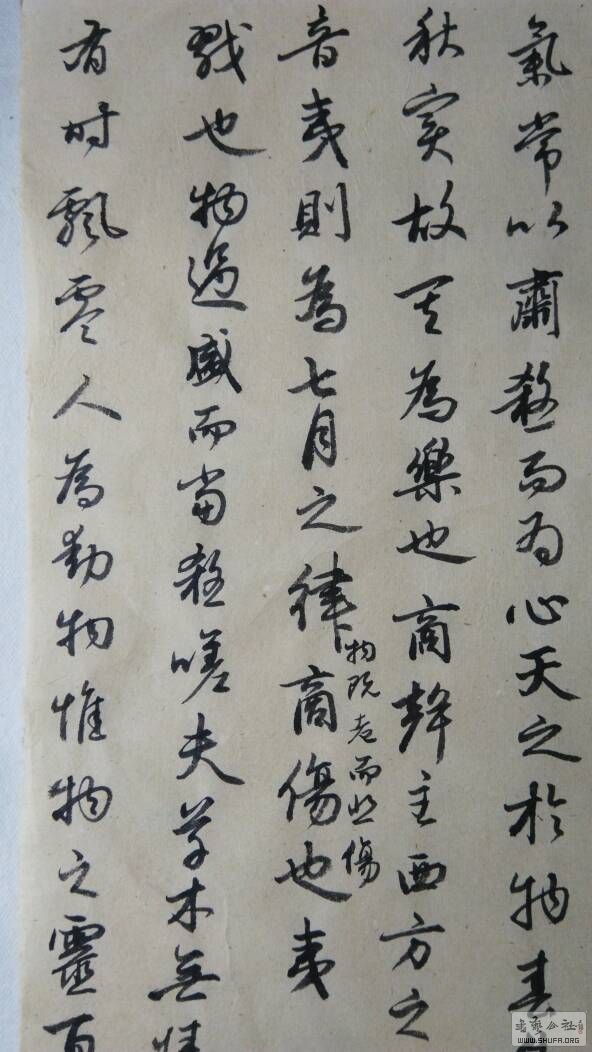 氣常以肅殺而為心天之於物春
秋實故其為樂也商聲主西方之
音夷則為七月之律商傷也夷
物既老而悲傷
戮也物過盛而當殺嗟夫草木無情
有時飄零人為動物惟物之靈百
書藝公社
WWW.SHUFA.ORG